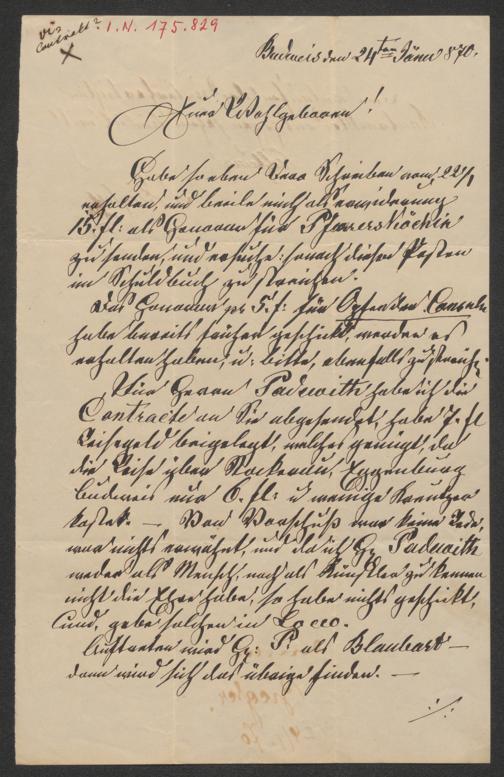 vis
Contrakt?
I. N. 175.829
Budweis den 24ten Jänn 870.
Euer Wohlgeboren!
Habe soeben Ihr Schreiben vom 22/1
erhalten, und beeile mich als Erwiderung
15. fl: als Honorar für Pfarrersköchin
zu senden, und ersuche: sonach diesen Posten
im Schuldbuch zu streichen.
Das Honorar pr 5. f: für Opfer des Consuls
habe bereits früher geschickt, werden es
erhalten haben, u: bitte, ebenfalls zu streichen.
Für Herrn Padewith habe ich die
Contracte an Sie abgesendet, habe 7. fl
Reisegeld beigelegt, welches genügt, da
die Reise über Stockerau, Eggenburg
Budweis nur 6. fl: u wenige Kreutzer
kostet. — Von Vorschuß war keine Rede,
war nichts erwähnt, und da ich H: Padewith
weder als Mensch, noch als Künstler zu kennen
nicht die Ehre habe, so habe nichts geschickt,
und, gebe solchen in Loco.
Auftreten wird H: P. als Blaubart —
dann wird sich das übrige finden. —
./.